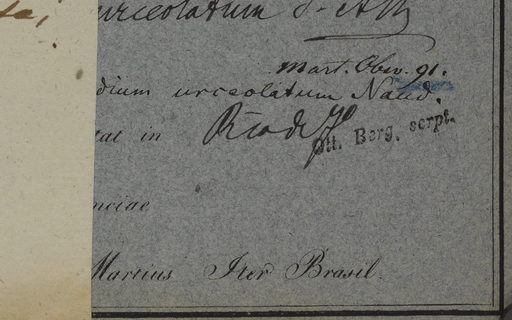 sa,
urceolatum
Mart. Obs. 91.
dium urceolatum Naud.
tat in Rio de J.
Ott. Berg. scrpt.
nciae
Martius Iter Brasil.